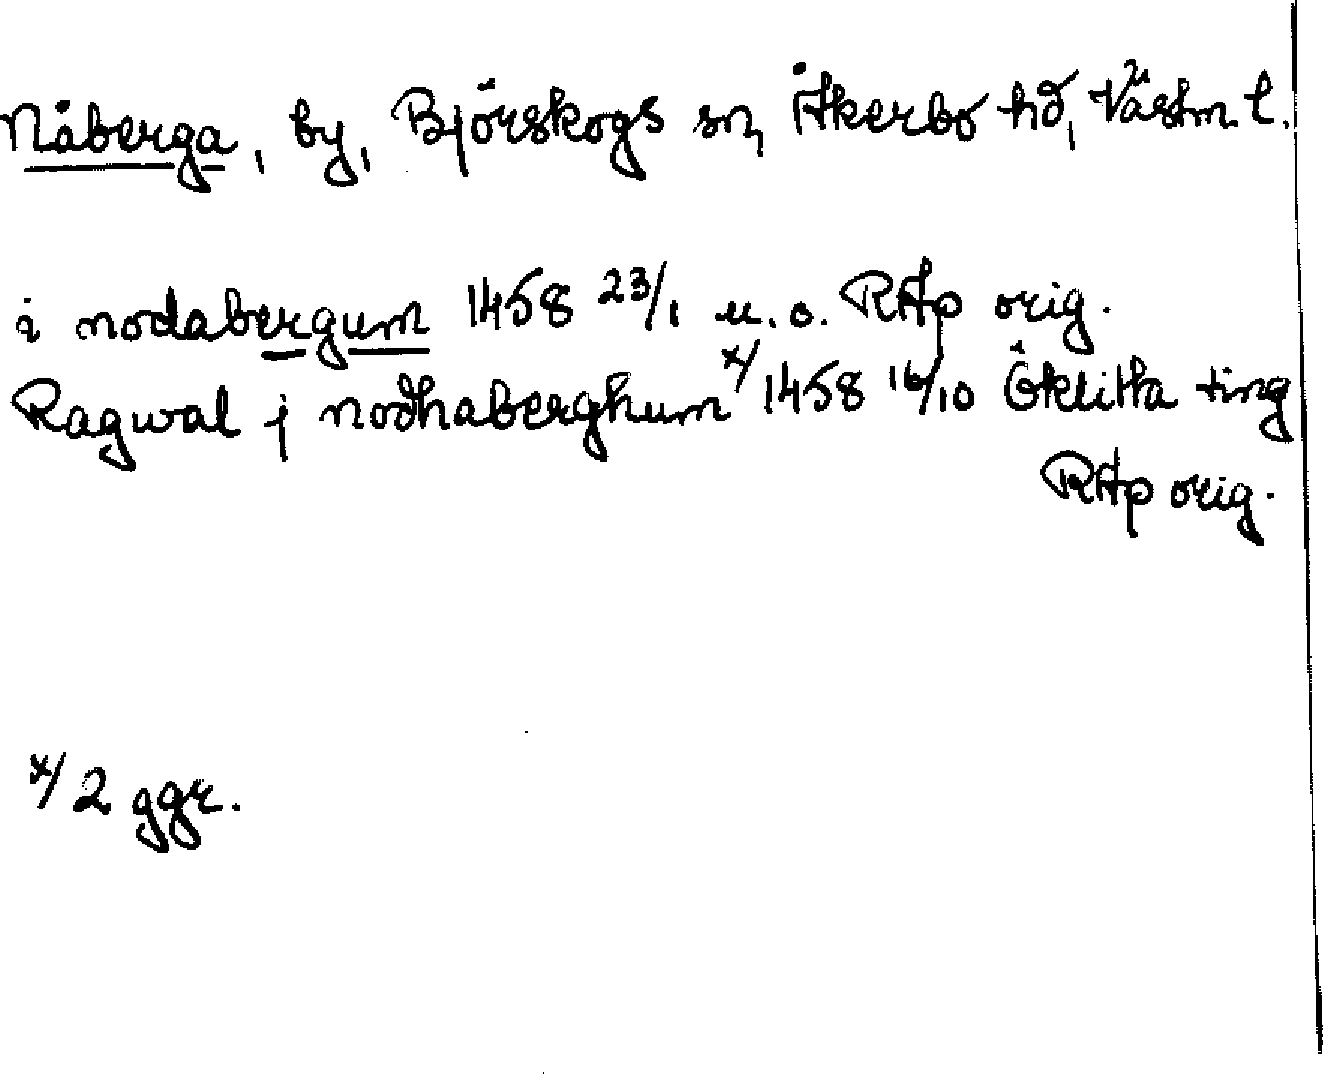 Nåberga, by, Björskogs sn, Åkerbo hd, Västm. l.
i nodabergum 1458 23/1 u. o. RAp orig.
Ragwal j nodhaberghum x/ 1458 16/10 Öklista ting
RAp orig.
x/ 2 ggr.